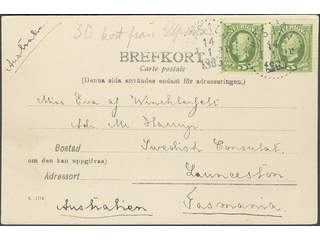 Australien
30 kort från
BREFKORT
Carte postale
(Denna sida användes endast för adresseringen.)
SVERIGE SVERIGE
14
1903
5 5
Miss Eva af
Adr. M.
Bostad Swedish Consulat
(om den kan uppgifvas)
Adressort Launceston
Australien Tasmania.